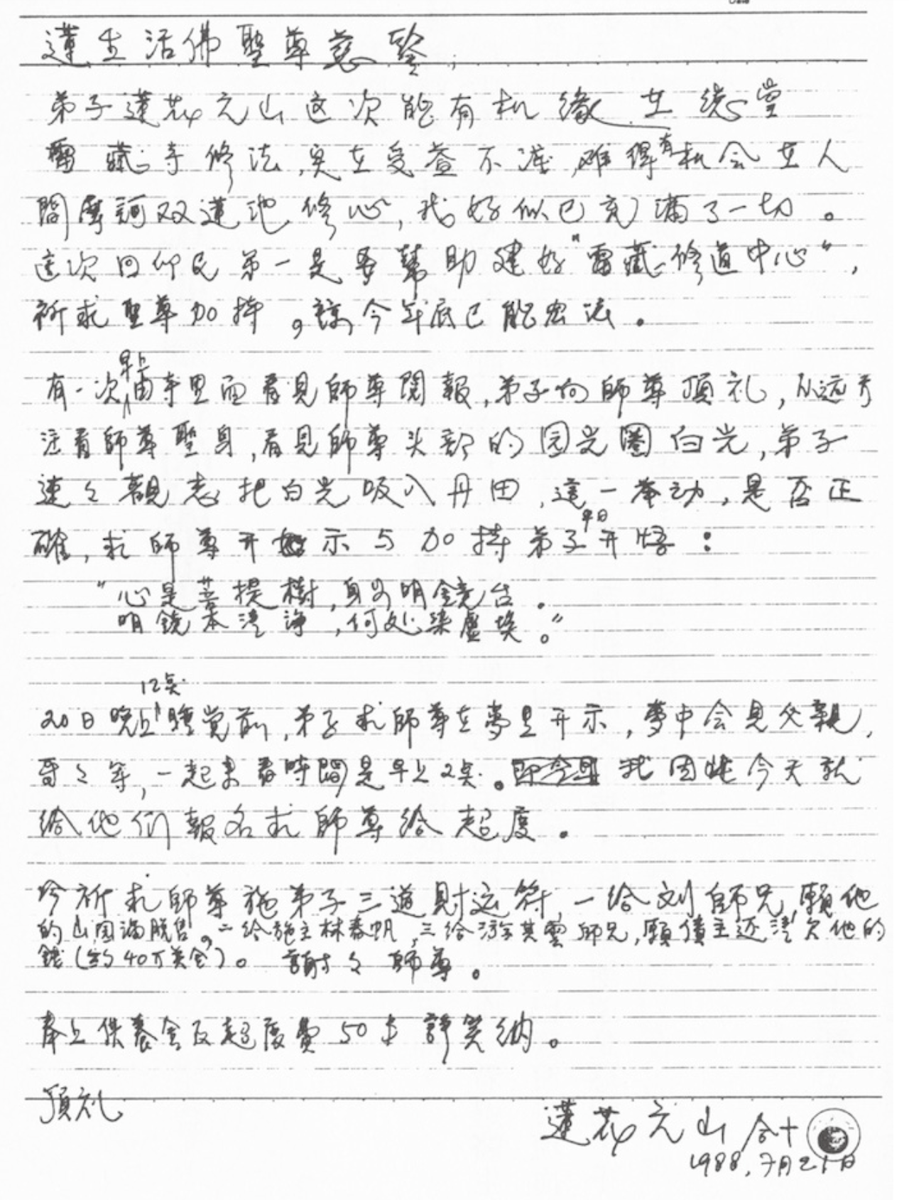 蓮生活佛聖尊慈鑒,
弟子蓮花元山这次能有机緣在總堂
雷藏寺修法,实在受益不浅,难得有机会在人
間摩訶双蓮池修心,我好似已充滿了一切。
這次回印尼第一是要幫助建好"雷藏修道中心",
祈求聖尊加持,讓今年底已能宏法。
有一次早上由寺里面看見師尊閱報,弟子向師尊頂礼,从远方
注看師尊聖身,看見師尊头部的园光圈白光,弟子
速々觀想把白光吸入丹田,這一举动,是否正
確,求師尊开示与加持弟子早日开悟:
"心是菩提樹,身為明鏡台.
明鏡本清净,何处染塵埃。"
20日晚上12点睡觉前,弟子求師尊在夢里开示,夢中会見父親,
哥々等,一起来看時間是早上2点。我因此今天就
给他们報名求師尊给超度。
今祈求師尊施弟子三道財运符,一给刘師兄願他
的山园滿脱售,二给施主林春帆,三给游美雲師兄,願債主还清欠他的
錢(约40万美金)。謝々師尊。
奉上供養金及超度費50$ 請笑纳。
頂礼
蓮花元山 合十
1988,7月21日